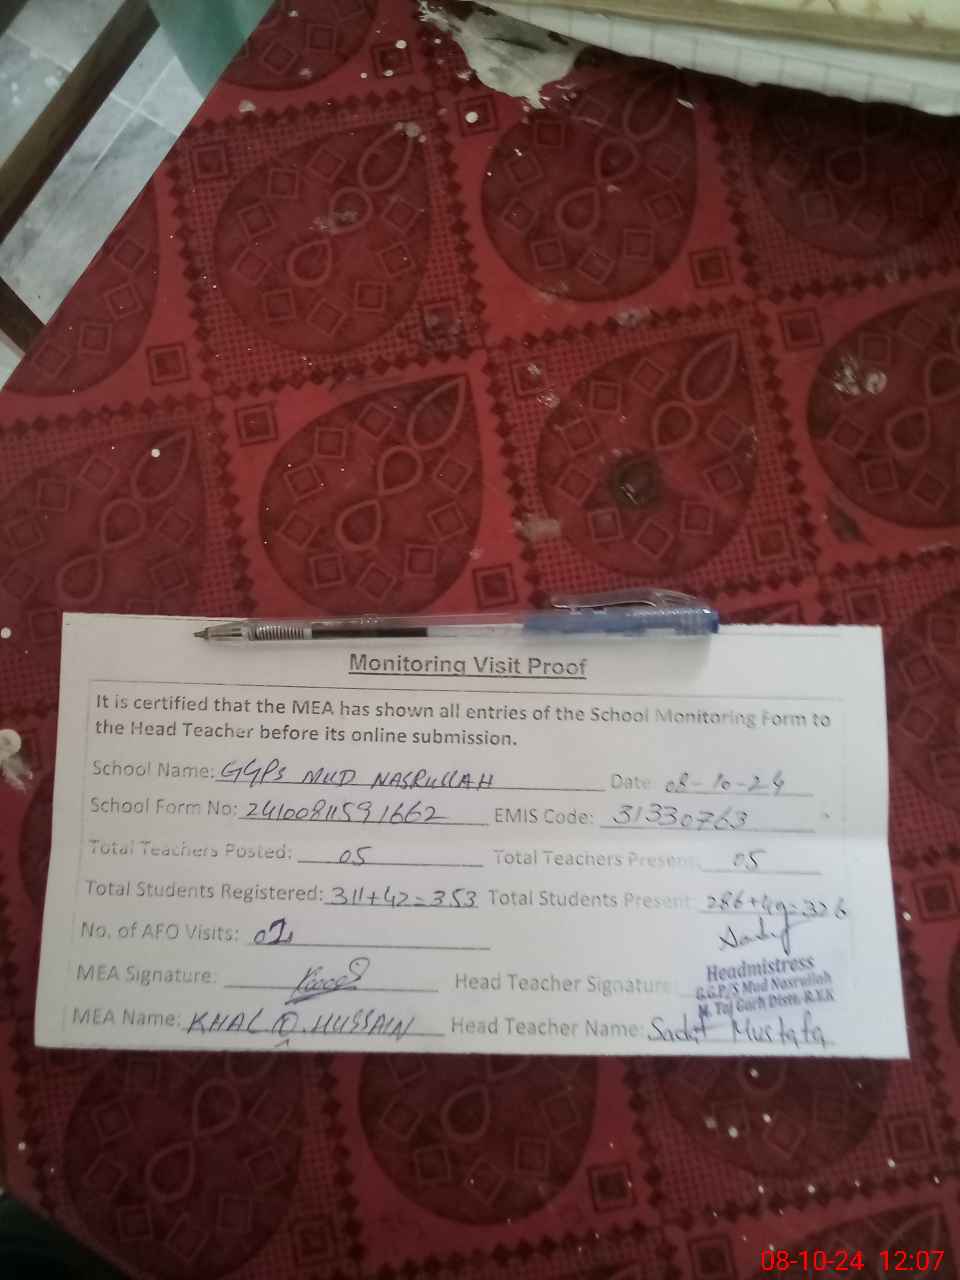 Monitoring Visit Proof
It is certified that the MEA has shown all entries of the School Monitoring Form to
the Head Teacher before its online submission.
School Name: GGPS MUD NASRULLAH Date: 08-10-24
School Form No: 2410081591662 EMIS Code: 31330763
Total Teachers Posted: 05 Total Teachers Present: 05
Total Students Registered: 311+42=353 Total Students Present:
No. of AFO Visits:
MEA Signature: Head Teacher Signature:
Headmistress
G.G.P/S Mud Nasrullah
M. Taj Garh Distt. R.Y.K
MEA Name: HUSSAIN Head Teacher Name: Mustafa
08-10-24 12:07